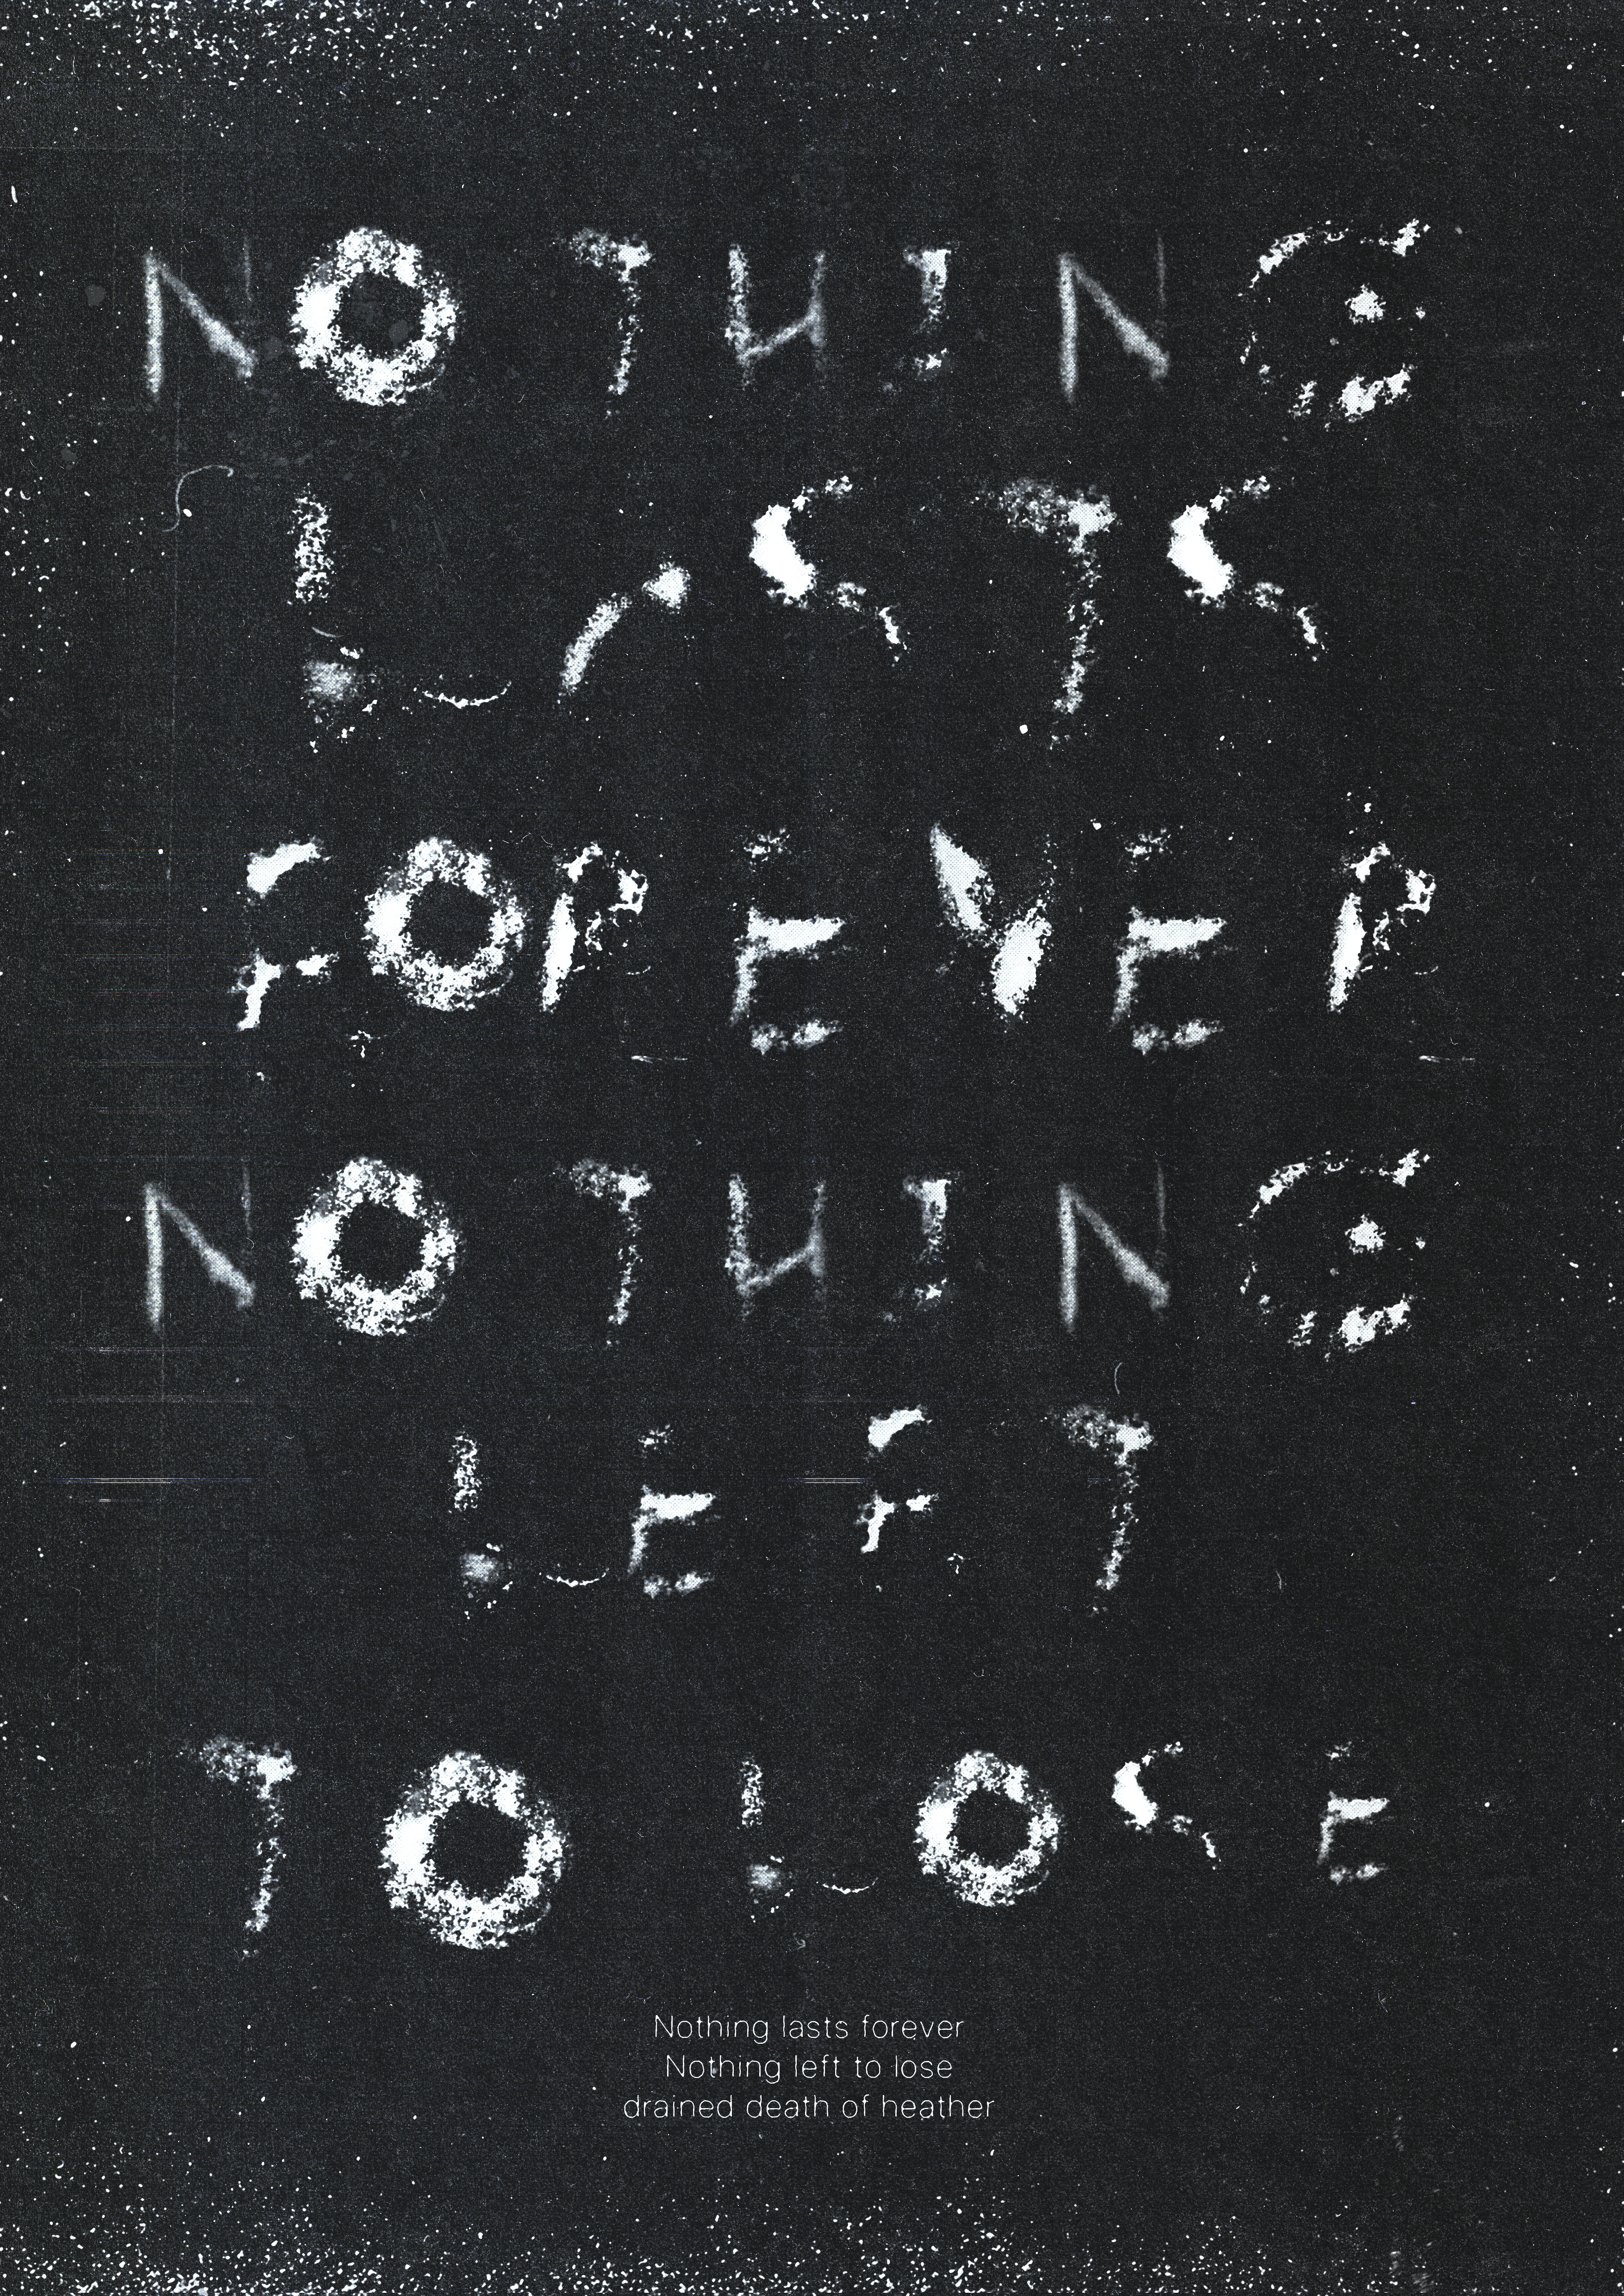 NOTHING
LASTS
FOREVER
NOTHING
LEFT
TO LOSE
Nothing lasts forever
Nothing left to lose
drained death of heather